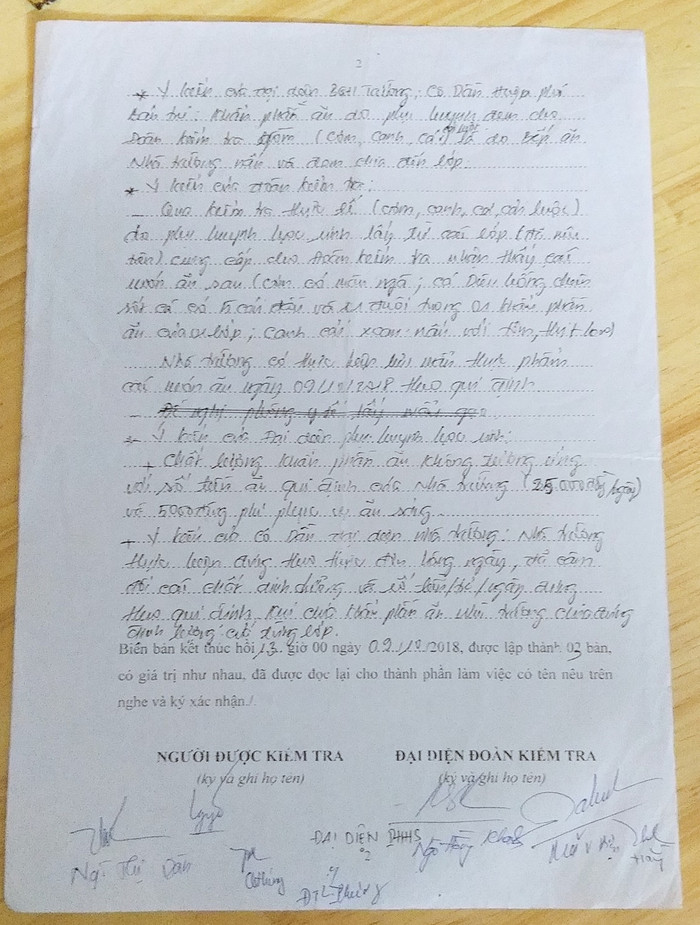 2
* Ý kiến của đại diện BGH Trường: Cô Dần Hiệu phó
bán trú: Khẩu phần ăn do phụ huynh đem cho
Đoàn kiểm tra gồm (cơm, canh, cá) là do bếp ăn
Nhà trường nấu và đem chia đến lớp.
* Ý kiến của đoàn kiểm tra:
- Qua kiểm tra thực tế (cơm, canh, cá, cải luộc)
do phụ huynh học sinh lấy từ các lớp
cung cấp cho Đoàn kiểm tra nhận thấy các
món ăn sau (cơm có; cá Diêu hồng chiên
sốt cà có 5 cái và đuôi trong 01 khẩu phần
ăn của lớp; canh cải xoong nấu với tôm, thịt heo)
Nhà trường có thực hiện lưu mẫu thực phẩm
các món ăn ngày 02/12/2018 theo qui định
- Đề nghị phòng y tế lấy mẫu
* Ý kiến của Đại diện phụ huynh học sinh:
+ Chất lượng khẩu phần ăn không tương ứng
với số tiền ăn qui định của Nhà trường (25.000đ/ngày)
và 5000 đồng phí phục vụ ăn sáng.
+ Ý kiến của cô Dần đại diện nhà trường: Nhà trường
thực hiện đúng theo thực đơn hàng ngày, đã cân
đối các chất dinh dưỡng và số tiền/trẻ/ngày đúng
theo qui định, khẩu phần ăn nhà trường chia đúng
định lượng của từng lớp.
Biên bản kết thúc hồi 13 giờ 00 ngày 02/12/2018, được lập thành 03 bản,
có giá trị như nhau, đã được đọc lại cho thành phần làm việc có tên nêu trên
nghe và ký xác nhận./.
NGƯỜI ĐƯỢC KIỂM TRA ĐẠI DIỆN ĐOÀN KIỂM TRA
(ký và ghi họ tên) (ký và ghi họ tên)
ĐẠI DIỆN PHHS
Ngô Thị Dần